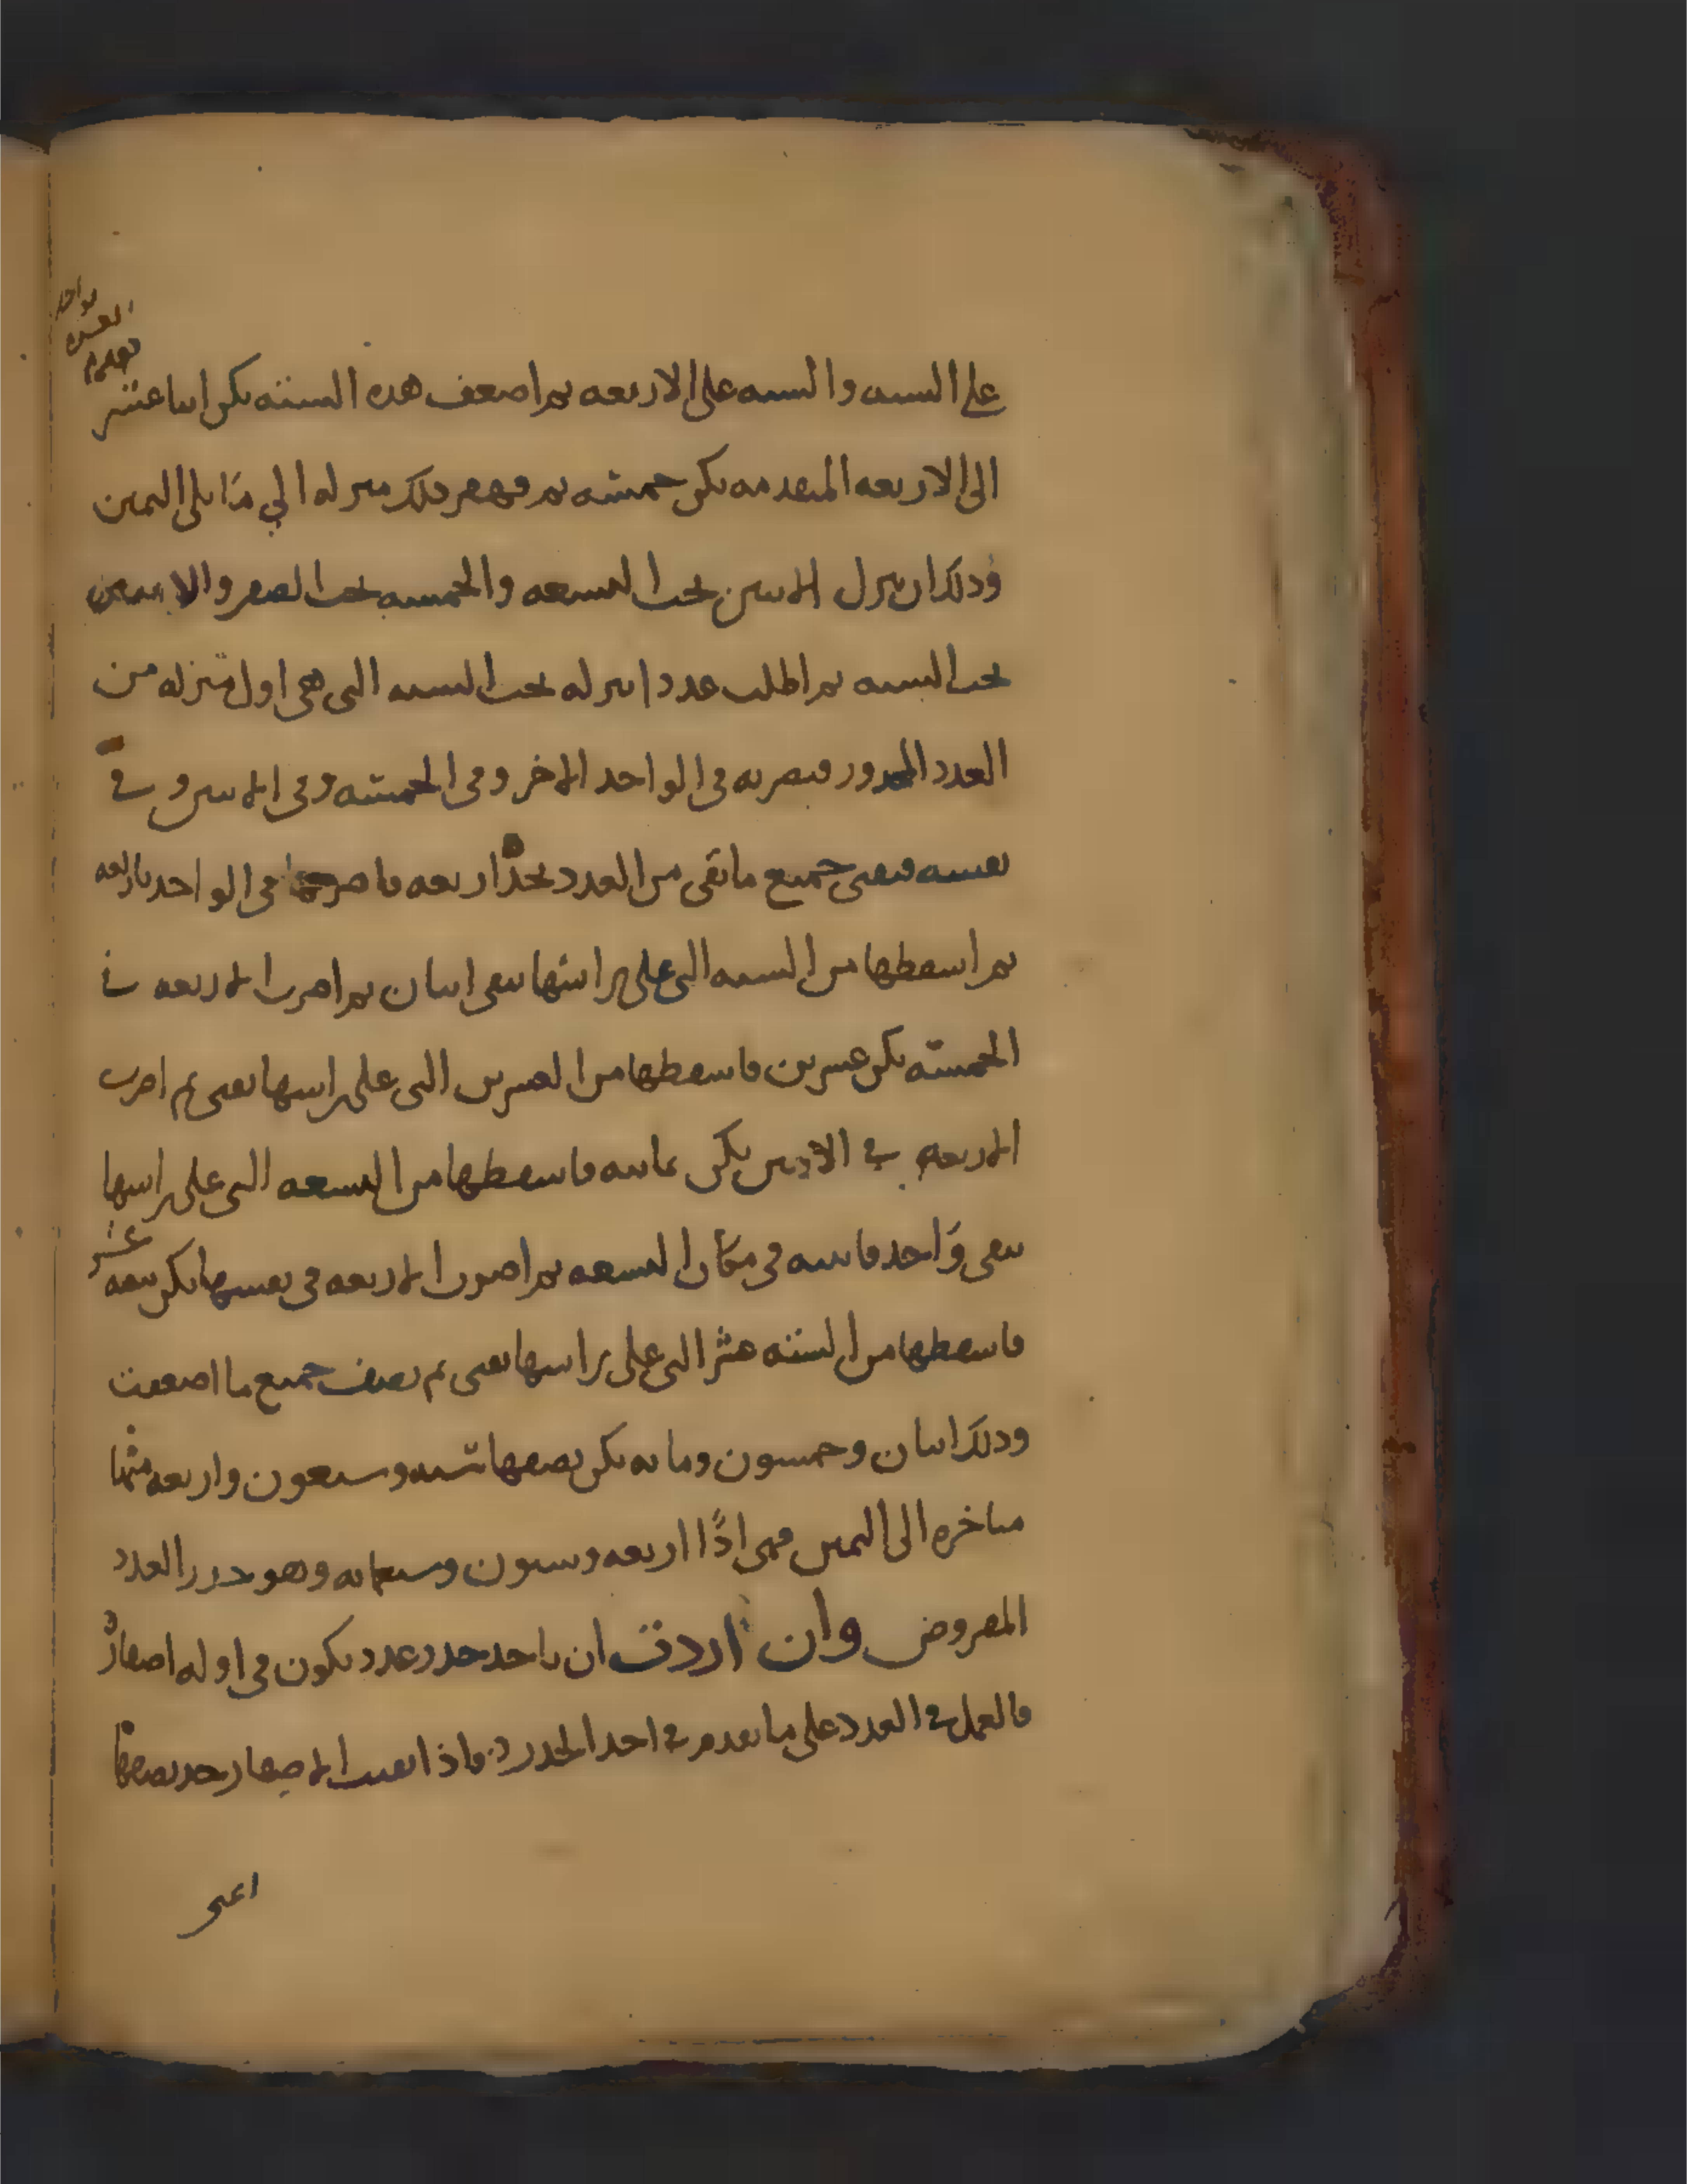 بواحد
العشرة
تقدم
على الستة والستة على الاربعة ثم اضعف هذه الستة يكن اثنا عشر
الى الاربعة المتقدمة يكن خمسة ثم قهقر ذلك منزلة الي ما يلي اليمين
وذلك ان ينزل الاثنين تحت التسعة والخمسة تحت الصفر والا
تحت الستة ثم اطلب عددا تنزله تحت الستة التي هي اول منزلة من
العدد المجذور فتضربه في الواحد الاخر وفي الخمسة وفي الاثنين وفي
نفسه فيفنى جميع ما بقى من العدد تجد اربعة فاضربها في الواحد باربعة
ثم اسقطها من الستة التي على راسها يبقى اثنان ثم اضرب الاربعة في
الخمسة يكن عشرين فاسقطها من العشرين التي على راسها تفنى ثم اضرب
الاربعة في الاثنين يكن ثمانية فاسقطها من التسعة التي على راسها
يبقى واحد فاثبته في مكان التسعة ثم اضرب الاربعة في نفسها يكن ستة عشر
فاسقطها من الستة عشر التي على راسها تفنى ثم نصف جميع ما اضعفت
وذلك اثنان وخمسون ومائة يكن نصفها ستة وسبعون واربعة منها
متاخرة الى اليمين فهي اذًا اربعة وستون وسبعمائة وهو جذر العدد
المفروض وان اردت ان تاخذ جذر عدد يكون في اوله اصفارٌ
فالعمل في العدد على ما تقدم في اخذ الجذر فاذا بقيت الاصفار خذ نصفها
اعنى